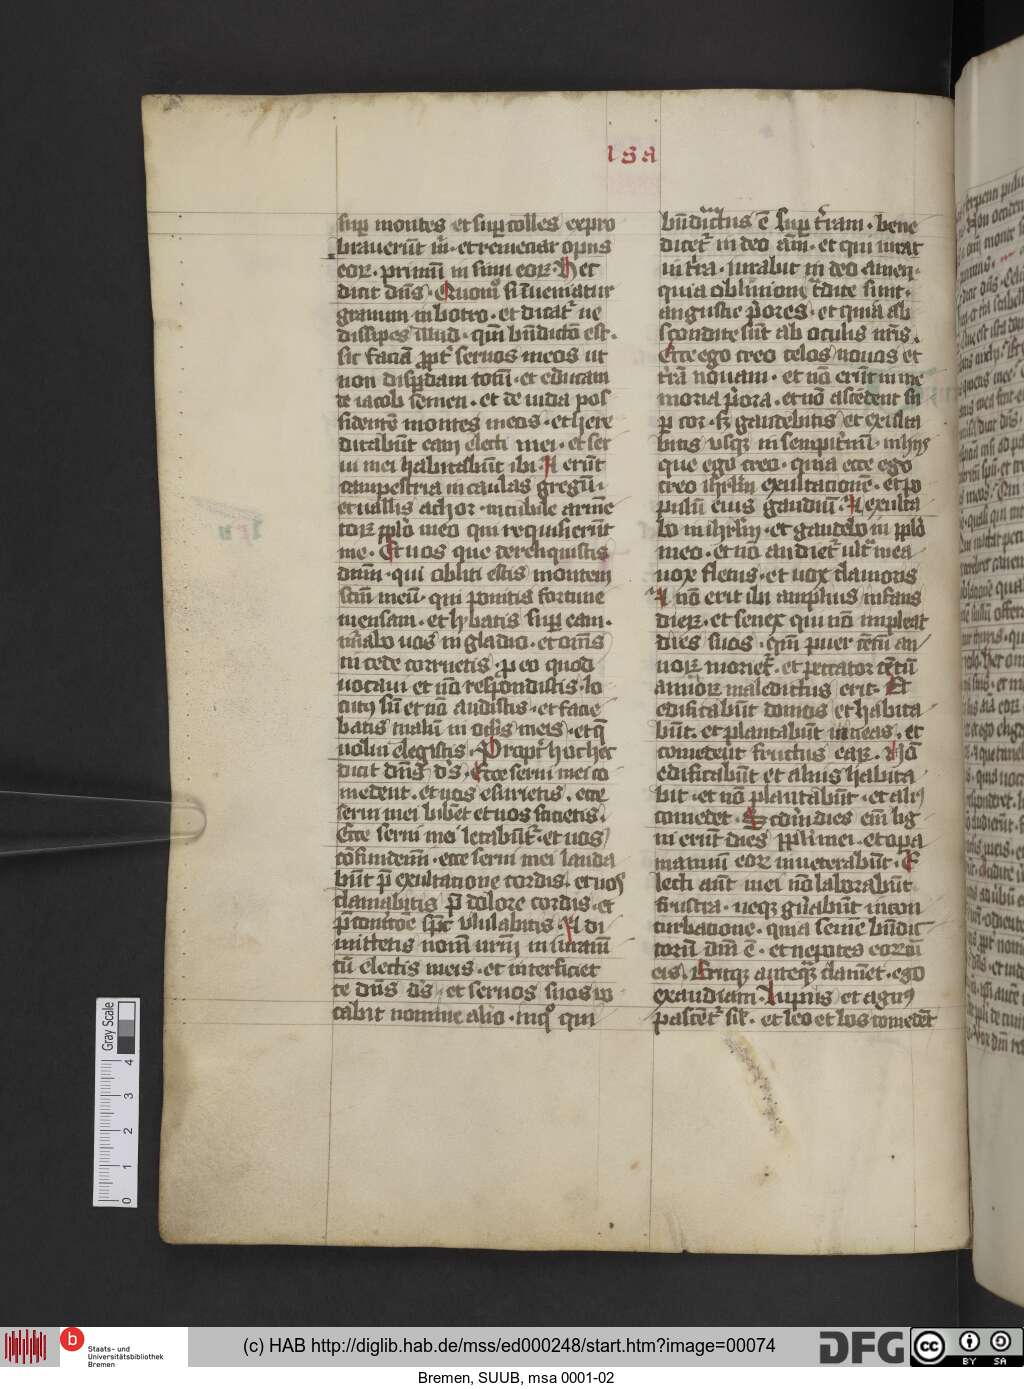 ısa
sup montes et sup colles expro
braverūt m̄. et remeciar opus
eoꝝ. primū in sinu eoꝝ. Hec
dicit dn̄s. Quomo si īueniatur
granum in botro. et dicatᷣ ne
dissipes illud. qm̄ bn̄dictō est.
sic faciā ꝓpt̄ seruos meos ut
non disꝑdam totū. et educam
de iacob semen. et de iuda pos
sidentē montes meos. et here
ditabūt eam electi mei. et ser
ui mei habitabūt ibi. Et erūt
campestria in caulas gregū.
et uallis achor. in cubile armē
toꝝ pp̄lo meo qui requisierūt
me. Et uos que dereliquistis
dn̄m. qui obliti estis montem
scm̄ meū. qui ponitis fortune
mensam. et lybatis suꝑ eam.
nūabo uos in gladio. et om̄s
in cede corruetis. p eo quod
uocaui et nō respondistis. lo
cutꝰ sū et nō audistis. et facie
batis malū in oclis meis. et q̄
nolui elegistis. Proptᷣ hoc hec
dicit dn̄s ds̄. Ecce serui mei co
medent. et uos esurietis. ecce
serui mei bibēt et uos sitietis.
Ecce serui mei letabūtᷣ. et uos
cōfundemī. ecce serui mei lauda
būt p̄ exultatione cordis. et uos
clamabitis p̄ dolore cordis. et
p̄ contritōe sp̄c ululabitis. Et di
mittetis nom̄ urm̄ in iuramē
tū electis meis. et interficiet
te dn̄s ds̄. et seruos suos uo
cabit nomine alio. in q̊ qui
bn̄dictus ē suꝑ tr̄am. bene
dicetᷣ in deo am̄. et qui iurat
in tr̄a. iurabit in deo amen.
quia obliuioni tᷣdite sunt.
angustie p̄ores. et quia ab
scondite sūt ab oculis nr̄is.
Ecce ego creo celos nouos et
tr̄ā nouam. et nō erūt in me
moria p̄ora. et nō ascēdent sū
ꝑ cor. sꝫ gaudebitis et exulta
bitis usqꝫ in sempitᷣnū. in hijs
que ego creo. quia ecce ego
creo ihrl̄m exultationē. et po
pulū eius gaudiū. Et exulta
bo in ihrl̄m. et gaudebo in pp̄lo
meo. et nō audietᷣ ultᷣ in ea
uox fletus. et uox clamoris
Et nō erit ibi amplius infans
dieꝝ. et senex qui nō impleat
dies suos. qm̄ puer centū an
noꝝ morietᷣ. et peccator cētū
annoꝝ maledictus erit. Et
edificabūt domos et habita
būt. et plantabūt uineas. et
comedent fructus eaꝝ. Nō
edificabūt et alius habita
bit. et nō plantabūt. et aliꝰ
comedet. Scd̄m dies em̄ lig
ni erūt dies pp̄li mei. et opa
manuū eoꝝ inueterabūt. E
lecti aūt mei nō laborabūt
frustra. neqꝫ gn̄abūt in con
turbatione. quia semē bn̄dic
torū dn̄i ē. et nepotes eorū cū
eis. Eritqꝫ anteqꝫ clamēt. ego
exaudiam. Lupus et agnꝰ
pascētᷣ sil̄. et leo et bos comedēt
Gray Scale
0 1 2 3 4
b
Staats- und
Universitätsbibliothek
Bremen
(c) HAB http://diglib.hab.de/mss/ed000248/start.htm?image=00074
DFG
cc
BY SA
Bremen, SUUB, msa 0001-02